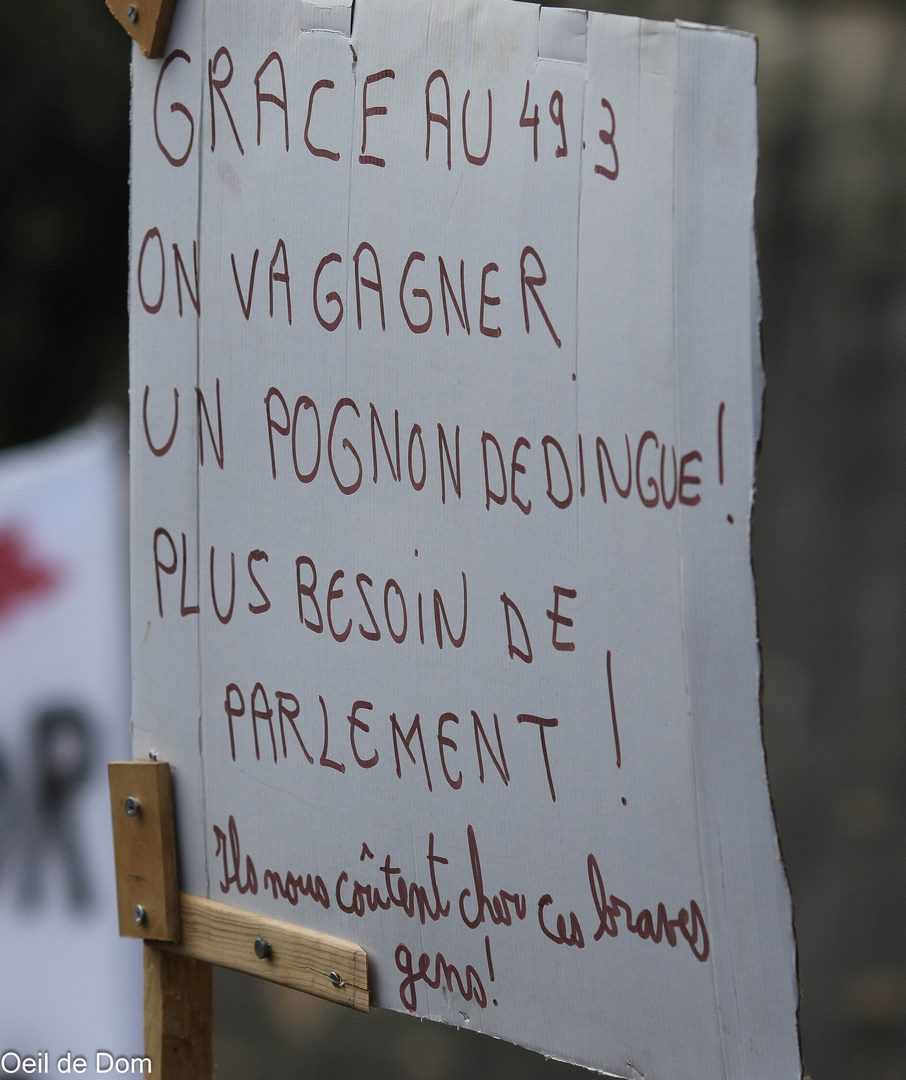 GRACE AU 49.3
ON VA GAGNER
UN POGNON DE DINGUE !
PLUS BESOIN DE
PARLEMENT !
Ils nous coûtent cher ces braves
gens !
Oeil de Dom